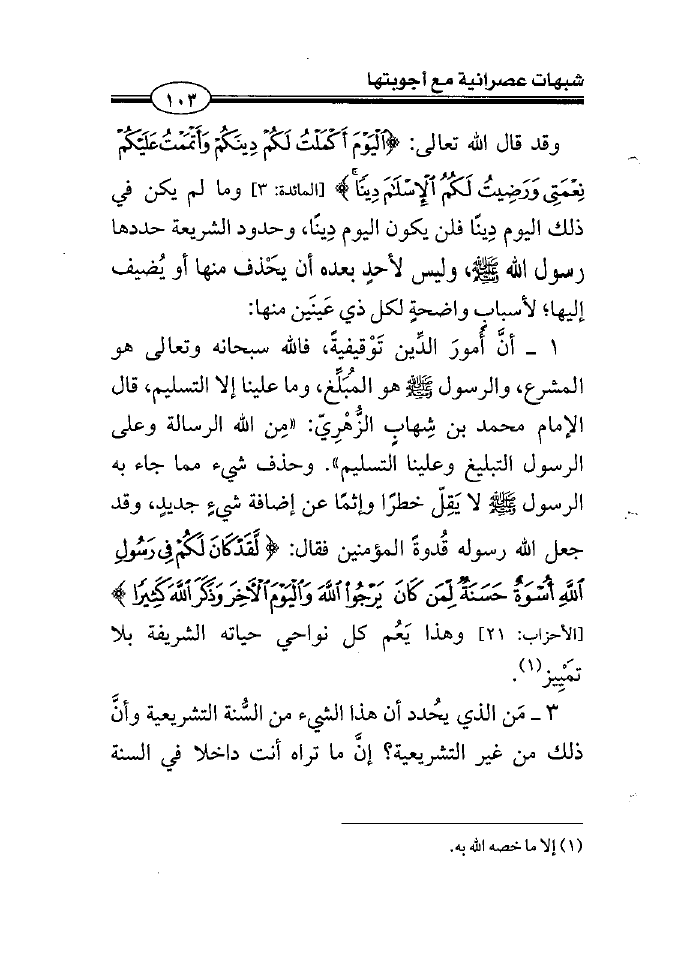 شبهات عصرانية مع أجوبتها
١٠٣
وقد قال الله تعالى: ﴿ٱلْيَوْمَ أَكْمَلْتُ لَكُمْ دِينَكُمْ وَأَتْمَمْتُ عَلَيْكُمْ
نِعْمَتِى وَرَضِيتُ لَكُمُ ٱلْإِسْلَٰمَ دِينًا ۚ﴾ [المائدة: ٣] وما لم يكن في
ذلك اليوم دِينًا فلن يكون اليوم دِينًا، وحدود الشريعة حددها
رسول الله ﷺ، وليس لأحدٍ بعده أن يَحْذف منها أو يُضيف
إليها؛ لأسبابٍ واضحةٍ لكل ذي عَينَين منها:
١ ـ أنَّ أُمورَ الدِّين تَوْقيفيةً، فالله سبحانه وتعالى هو
المشرع، والرسول ﷺ هو المُبَلِّغ، وما علينا إلا التسليم، قال
الإمام محمد بن شِهابٍ الزُّهْرِيّ: «مِن الله الرسالة وعلى
الرسول التبليغ وعلينا التسليم». وحذف شيء مما جاء به
الرسول ﷺ لا يَقِلّ خطرًا وإثمًا عن إضافة شيءٍ جديدٍ، وقد
جعل الله رسوله قُدوةً المؤمنين فقال: ﴿ لَّقَدْ كَانَ لَكُمْ فِى رَسُولِ
ٱللَّهِ أُسْوَةٌ حَسَنَةٌ لِّمَن كَانَ يَرْجُوا۟ ٱللَّهَ وَٱلْيَوْمَ ٱلْءَاخِرَ وَذَكَرَ ٱللَّهَ كَثِيرًا ﴾
[الأحزاب: ٢١] وهذا يَعُم كل نواحي حياته الشريفة بلا
تمْيِيز(١).
٣ ـ مَن الذي يحُدد أن هذا الشيء من السُّنة التشريعية وأنَّ
ذلك من غير التشريعية؟ إنَّ ما تراه أنت داخلا في السنة
(١) إلا ما خصه الله به.